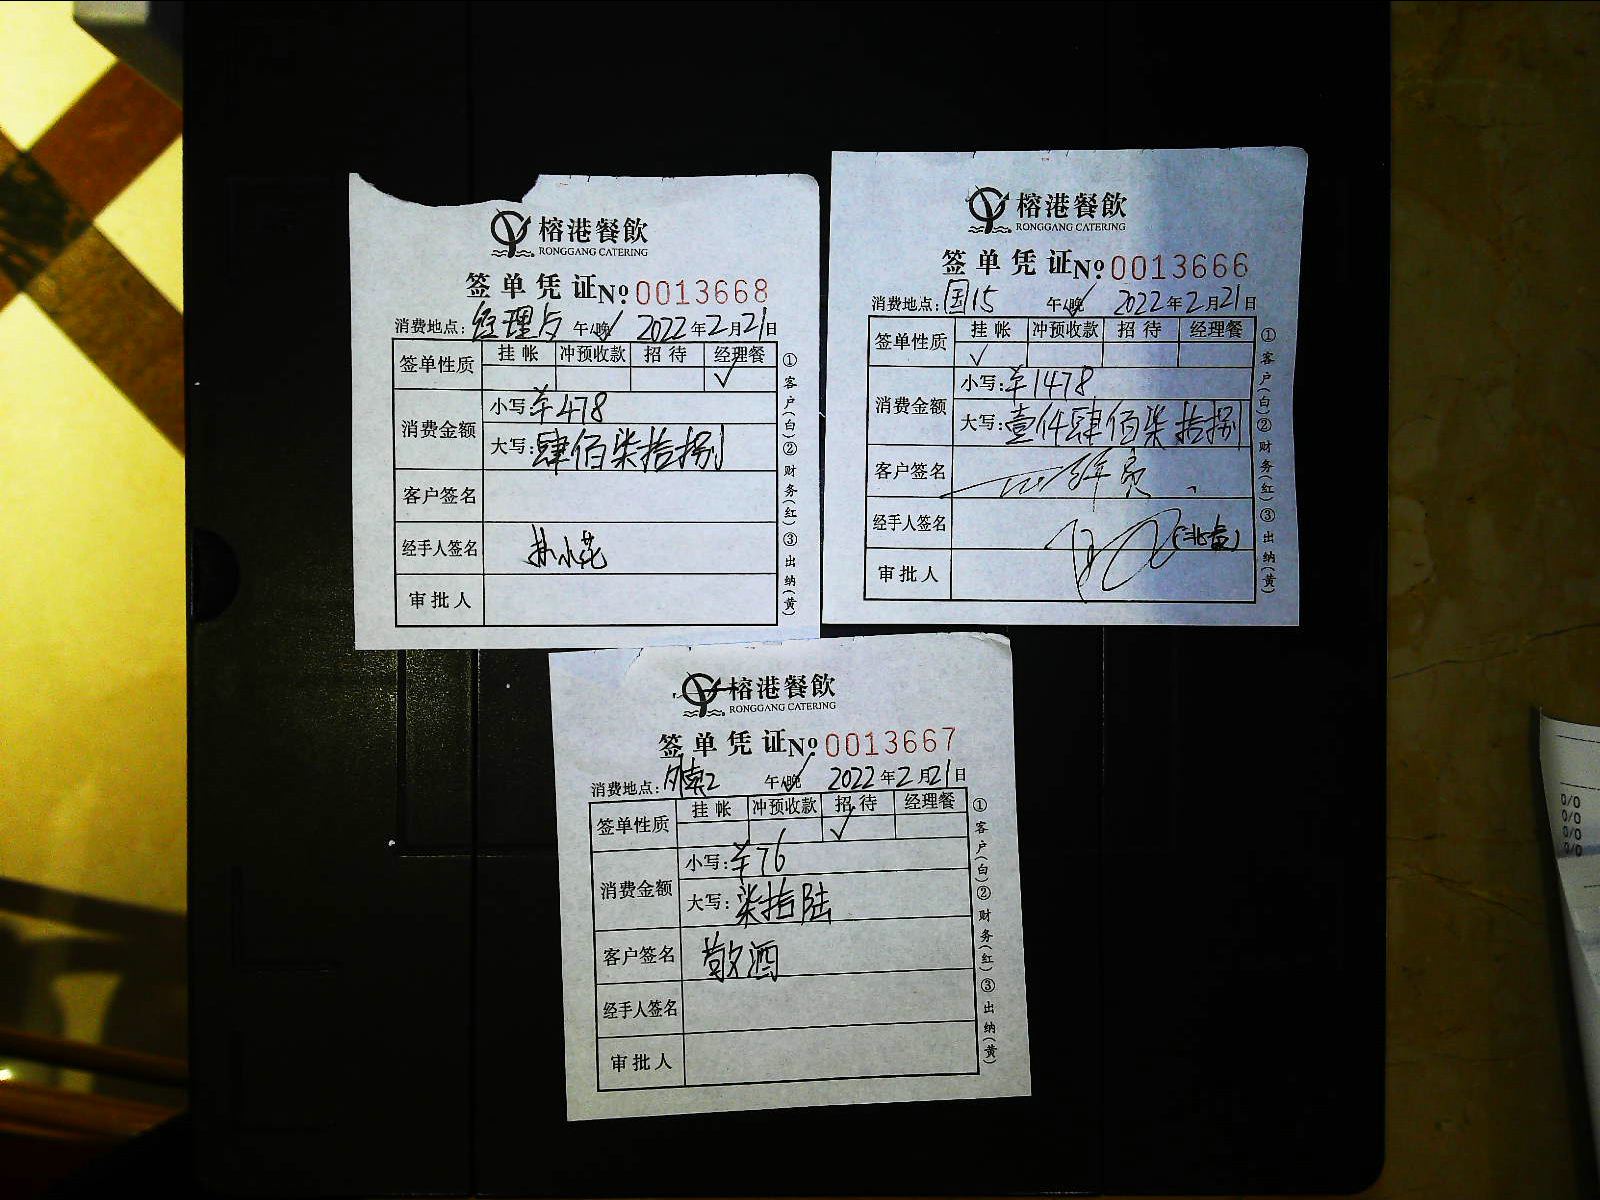 榕港餐飲
RONGGANG CATERING
签单凭证 №0013668
消费地点: 经理与 午/晚 2022年2月21日
签单性质 挂帐 冲预收款 招待 经理餐
✓
消费金额 小写: ¥478
大写: 肆佰柒拾捌
客户签名
经手人签名 小花
审批人
①客户(白)②财务(红)③出纳(黄)
榕港餐飲
RONGGANG CATERING
签单凭证 №0013666
消费地点: 国15 午/晚 2022年2月21日
签单性质 挂帐 冲预收款 招待 经理餐
✓
消费金额 小写: ¥1478
大写: 壹仟肆佰柒拾捌
客户签名
经手人签名
审批人
①客户(白)②财务(红)③出纳(黄)
榕港餐飲
RONGGANG CATERING
签单凭证 №0013667
消费地点: 2 午/晚 2022年2月21日
签单性质 挂帐 冲预收款 招待 经理餐
✓
消费金额 小写: ¥76
大写: 柒拾陆
客户签名 散酒
经手人签名
审批人
①客户(白)②财务(红)③出纳(黄)
0/0
0/0
0/0
0/0